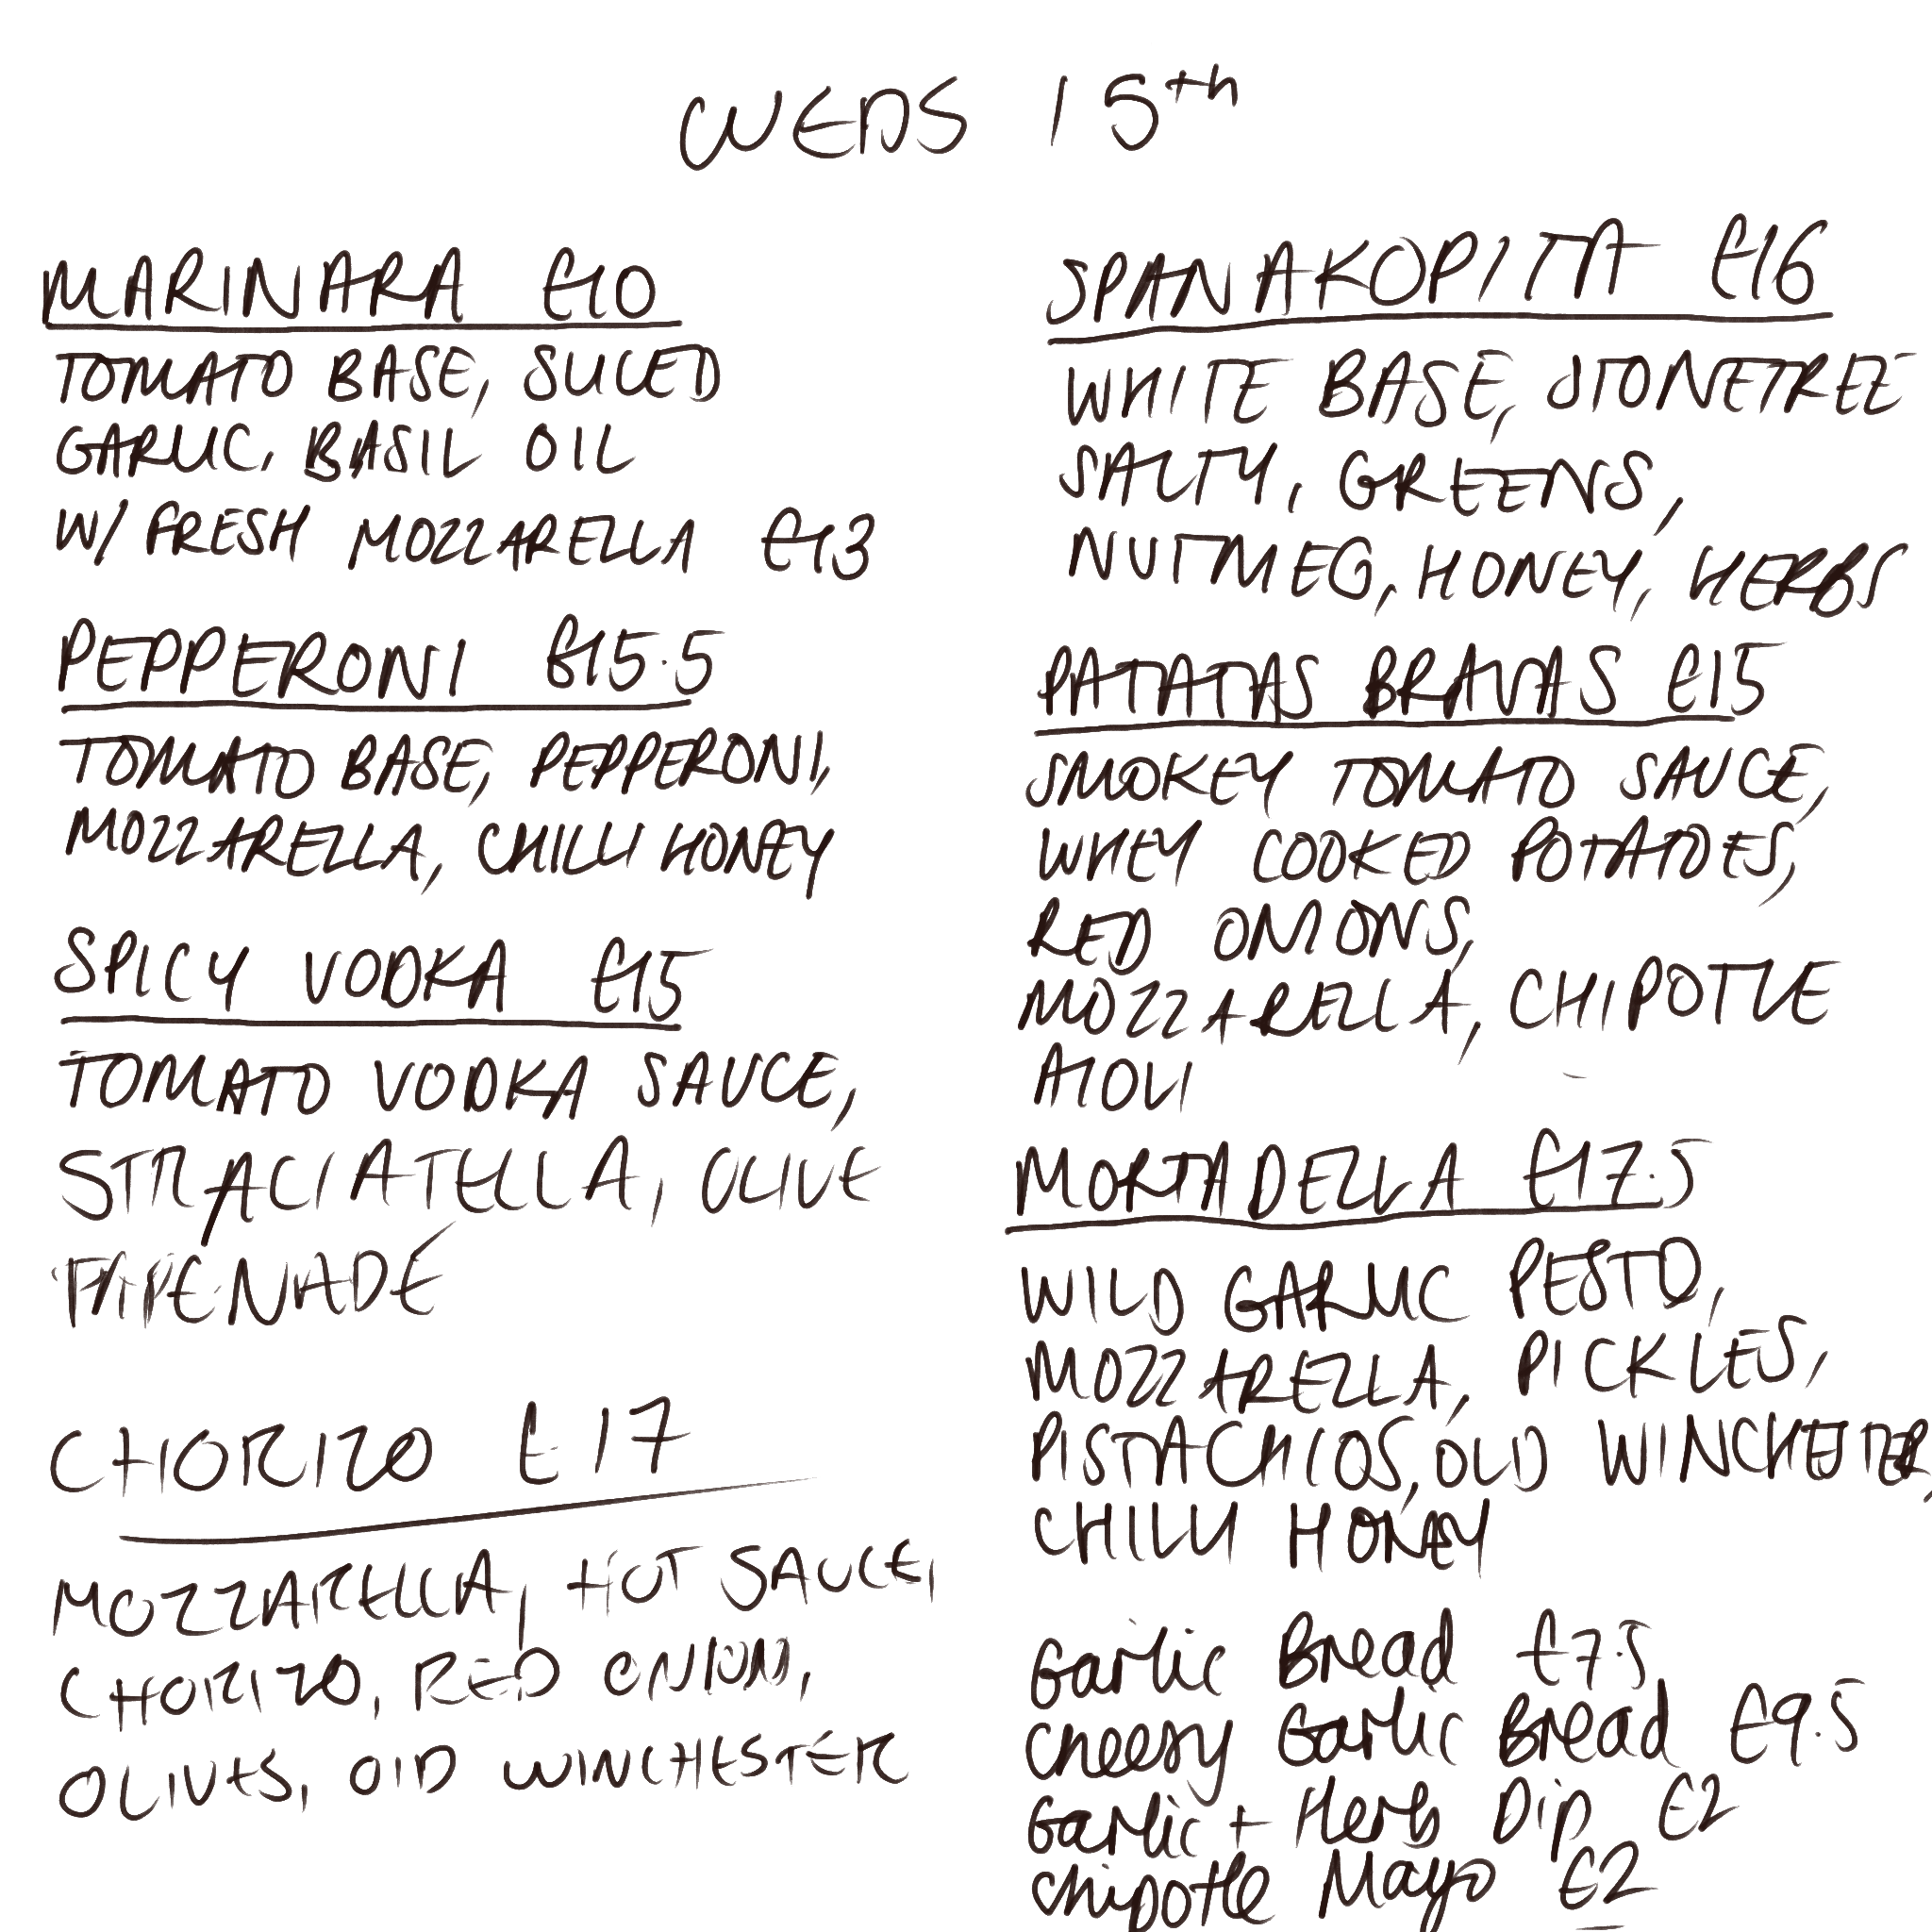 WEDS 15th
MARINARA £10
TOMATO BASE, SLICED
GARLIC, BASIL OIL
W/ FRESH MOZZARELLA £13
PEPPERONI £15.5
TOMATO BASE, PEPPERONI,
MOZZARELLA, CHILLI HONEY
SPICY VODKA £15
TOMATO VODKA SAUCE,
STRACIATELLA, OLIVE
TAPENADE
CHORIZO £17
MOZZARELLA, HOT SAUCE,
CHORIZO, RED ONION,
OLIVES, OLD WINCHESTER
SPANAKOPITTA £16
WHITE BASE, STONETREE
SALTY, GREENS,
NUTMEG, HONEY, HERBS
PATATAS BRAVAS £15
SMOKEY TOMATO SAUCE,
WHEY COOKED POTATOES,
RED ONIONS,
MOZZARELLA, CHIPOTLE
AIOLI
MORTADELLA £17.5
WILD GARLIC PESTO,
MOZZARELLA, PICKLES,
PISTACHIOS, OLD WINCHESTER,
CHILLI HONEY
Garlic Bread £7.5
Cheesy Garlic Bread £9.5
Garlic + Herb Dip £2
Chipotle Mayo £2